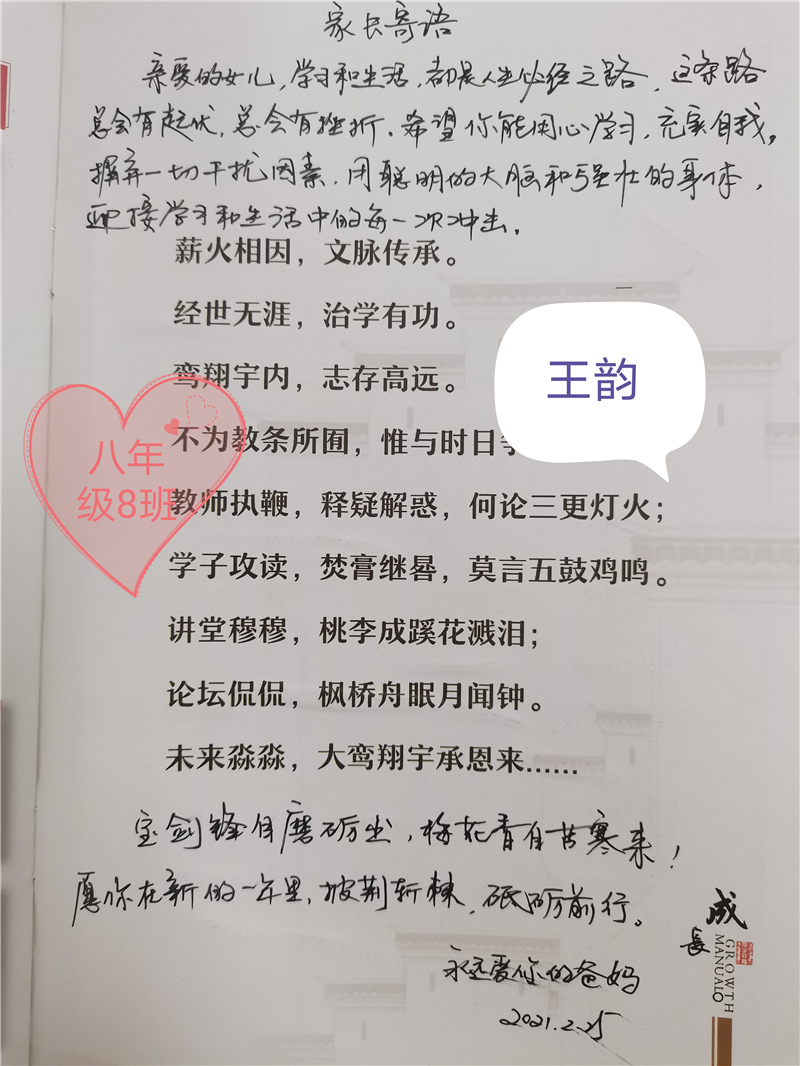 家长寄语
亲爱的女儿，学习和生活，都是人生必经之路，这条路
总会有起伏，总会有挫折。希望你能用心学习，充实自我，
摒弃一切干扰因素，用聪明的大脑和强壮的身体，
迎接学习和生活中的每一次冲击。
薪火相因，文脉传承。
经世无涯，治学有功。
鸾翔宇内，志存高远。
王韵
不为教条所囿，惟与时日
八年
级8班
教师执鞭，释疑解惑，何论三更灯火；
学子攻读，焚膏继晷，莫言五鼓鸡鸣。
讲堂穆穆，桃李成蹊花溅泪；
论坛侃侃，枫桥舟眠月闻钟。
未来淼淼，大鸾翔宇承恩来……
宝剑锋自磨砺出，梅花香自苦寒来！
愿你在新的一年里，披荆斩棘，砥砺前行。
永远爱你的爸妈
2021.2.25
成
長
GROWTH
MANUAL